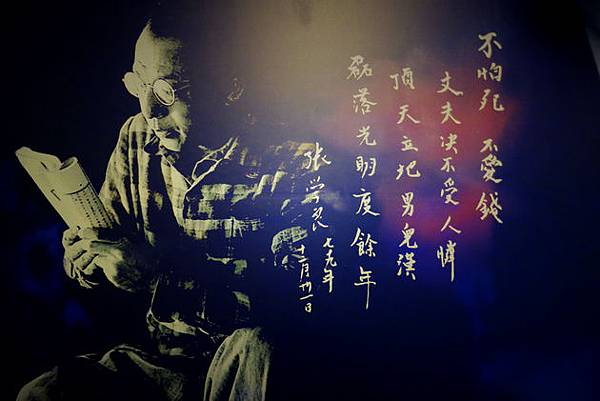 不怕死 不愛錢
丈夫决不受人憐
頂天立地男兒漢
磊落光明度餘年
張學良
七九年
十二月卅一日